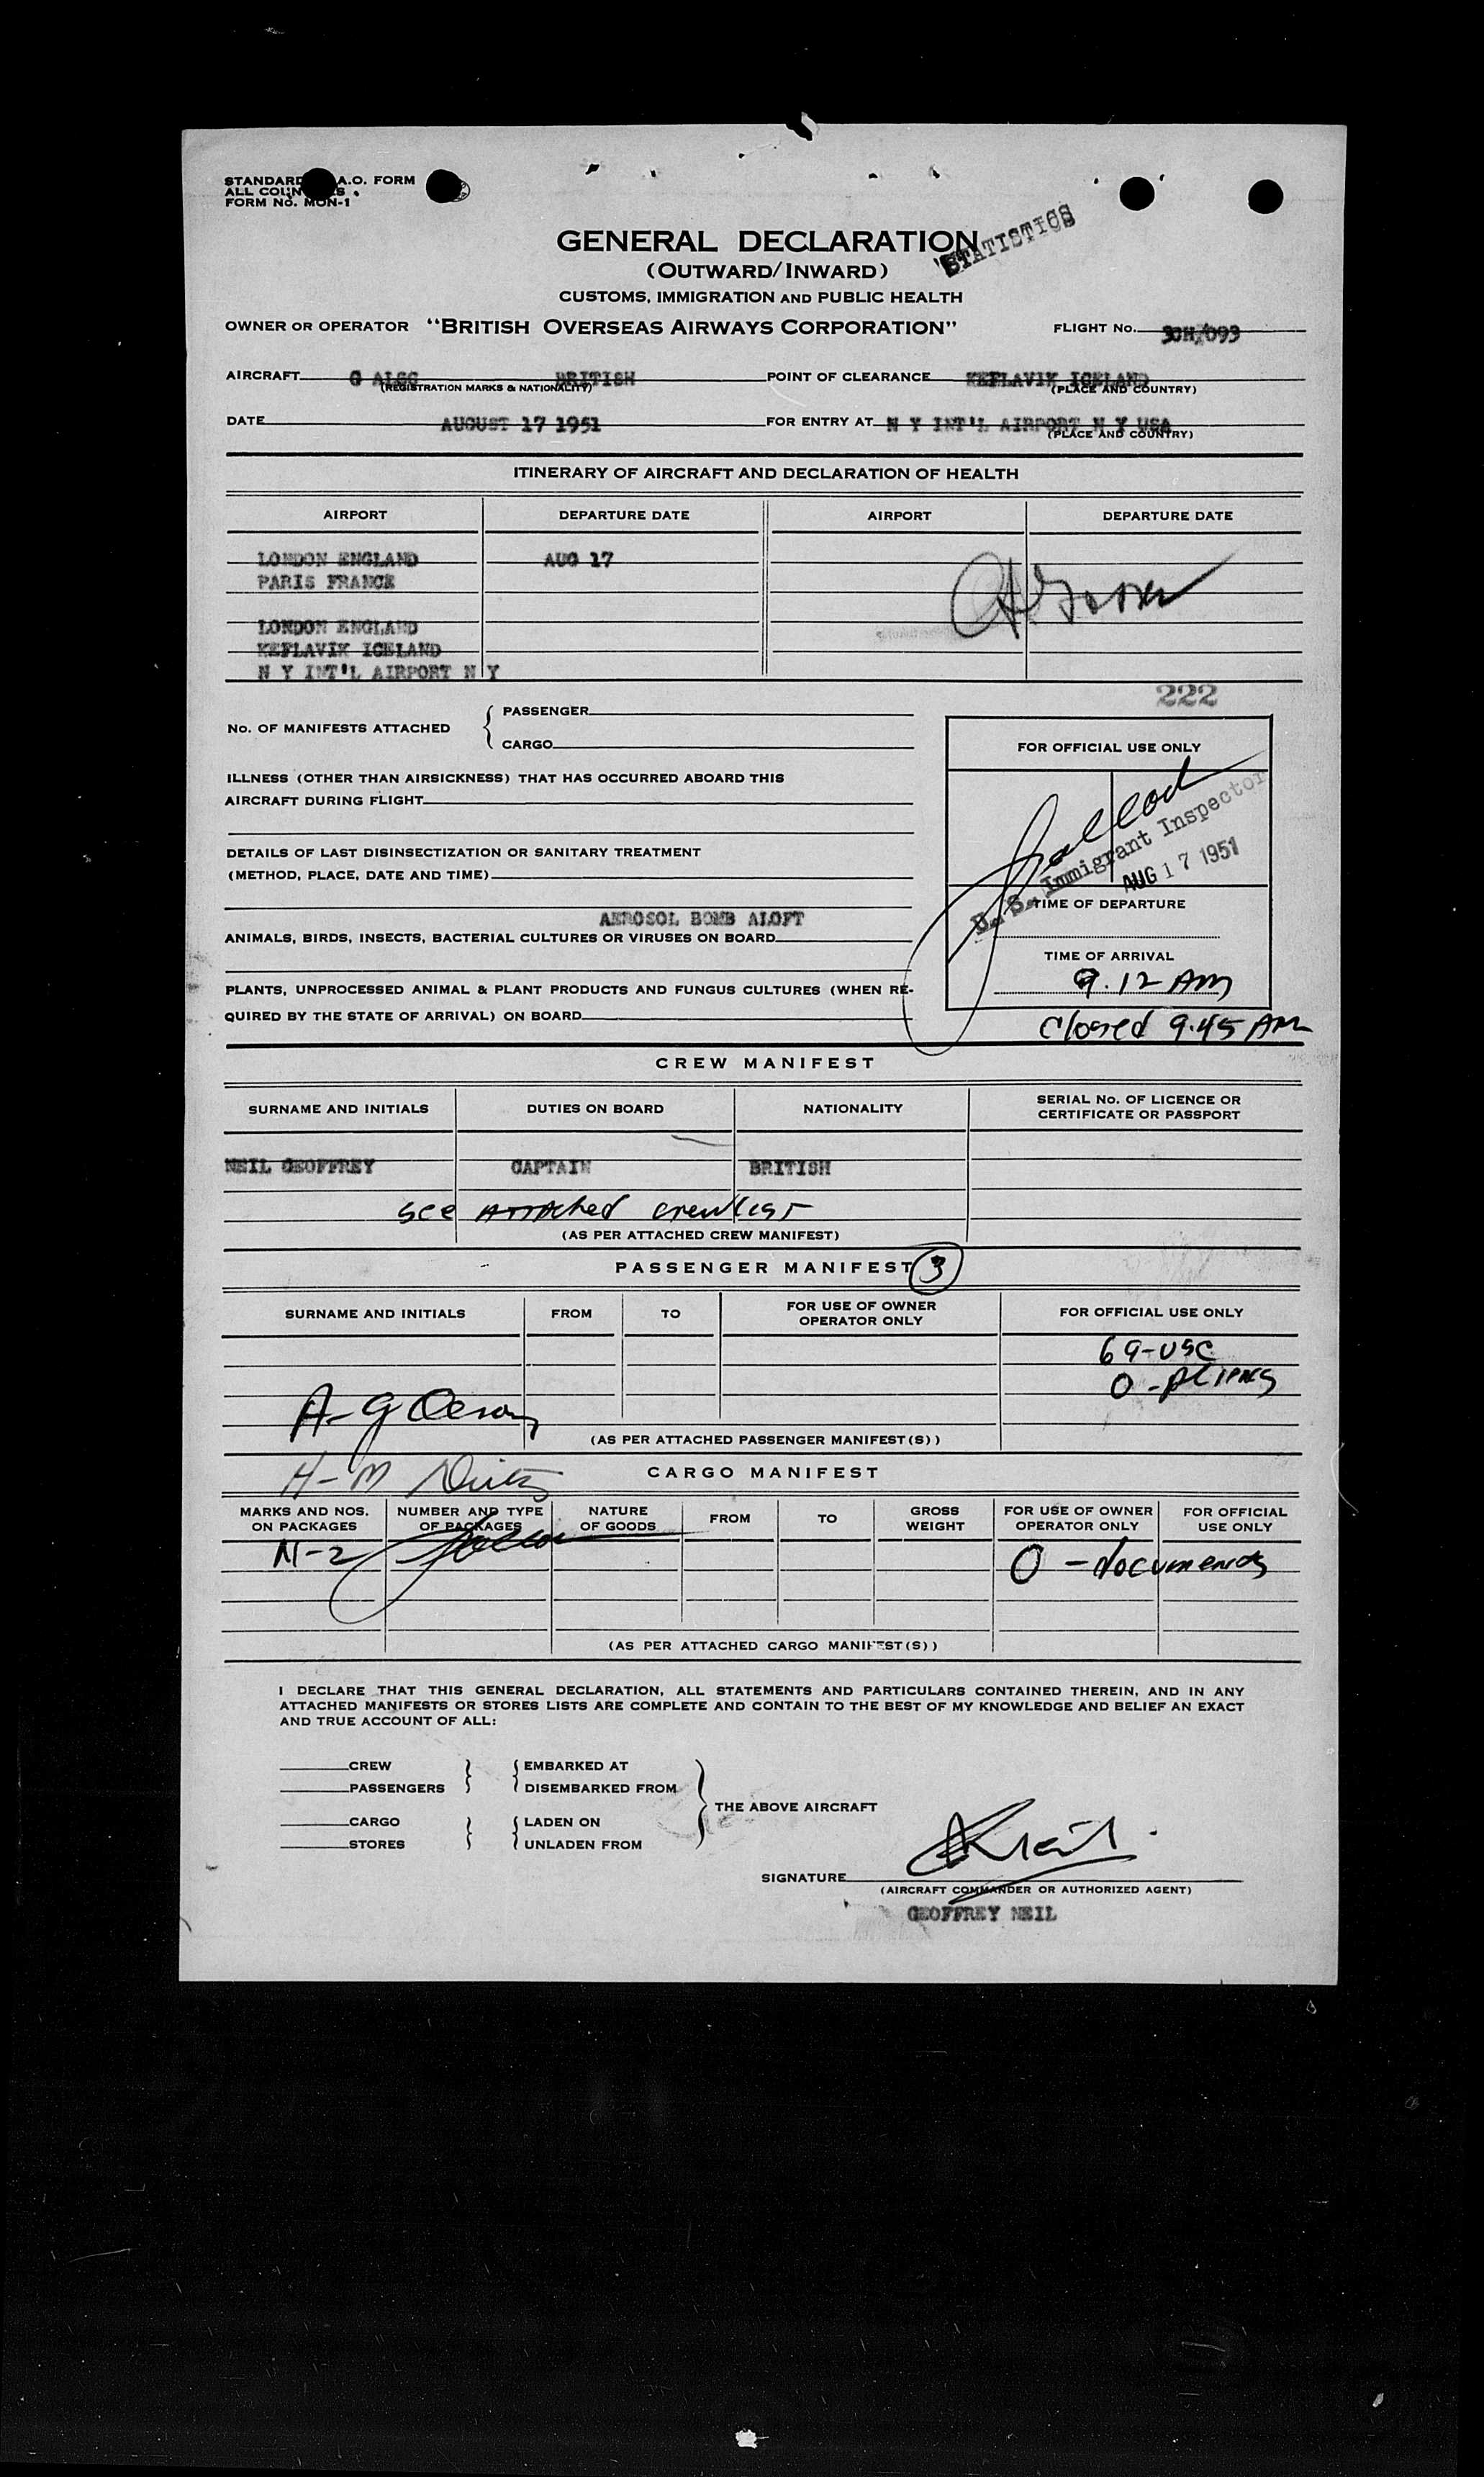 STANDARD A.O. FORM
ALL COUN S
FORM NO. MON-1
GENERAL DECLARATION
STATISTICS
(OUTWARD/INWARD)
CUSTOMS, IMMIGRATION AND PUBLIC HEALTH
OWNER OR OPERATOR "BRITISH OVERSEAS AIRWAYS CORPORATION" FLIGHT NO. /093
AIRCRAFT G ALSC BRITISH POINT OF CLEARANCE KEFLAVIK ICELAND
(REGISTRATION MARKS & NATIONALITY) (PLACE AND COUNTRY)
DATE AUGUST 17 1951 FOR ENTRY AT N Y INT'L AIRPORT N Y USA
(PLACE AND COUNTRY)
ITINERARY OF AIRCRAFT AND DECLARATION OF HEALTH
AIRPORT DEPARTURE DATE AIRPORT DEPARTURE DATE
LONDON ENGLAND AUG 17
PARIS FRANCE
LONDON ENGLAND
KEFLAVIK ICELAND
N Y INT'L AIRPORT N Y
222
NO. OF MANIFESTS ATTACHED { PASSENGER
CARGO
FOR OFFICIAL USE ONLY
ILLNESS (OTHER THAN AIRSICKNESS) THAT HAS OCCURRED ABOARD THIS
AIRCRAFT DURING FLIGHT
U. S. Immigrant Inspector
AUG 17 1951
DETAILS OF LAST DISINSECTIZATION OR SANITARY TREATMENT
(METHOD, PLACE, DATE AND TIME)
TIME OF DEPARTURE
AEROSOL BOMB ALOFT
ANIMALS, BIRDS, INSECTS, BACTERIAL CULTURES OR VIRUSES ON BOARD
TIME OF ARRIVAL
9.12 AM
PLANTS, UNPROCESSED ANIMAL & PLANT PRODUCTS AND FUNGUS CULTURES (WHEN RE-
QUIRED BY THE STATE OF ARRIVAL) ON BOARD
Closed 9.45 AM
CREW MANIFEST
SURNAME AND INITIALS DUTIES ON BOARD NATIONALITY SERIAL NO. OF LICENCE OR
CERTIFICATE OR PASSPORT
NEIL GEOFFREY CAPTAIN BRITISH
see attached crewlist
(AS PER ATTACHED CREW MANIFEST)
PASSENGER MANIFEST 3
SURNAME AND INITIALS FROM TO FOR USE OF OWNER
OPERATOR ONLY FOR OFFICIAL USE ONLY
69-USC
0-Aliens
A-G
(AS PER ATTACHED PASSENGER MANIFEST(S))
H-M
CARGO MANIFEST
MARKS AND NOS.
ON PACKAGES NUMBER AND TYPE
OF PACKAGES NATURE
OF GOODS FROM TO GROSS
WEIGHT FOR USE OF OWNER
OPERATOR ONLY FOR OFFICIAL
USE ONLY
N-Z
0 - documents
(AS PER ATTACHED CARGO MANIFEST(S))
I DECLARE THAT THIS GENERAL DECLARATION, ALL STATEMENTS AND PARTICULARS CONTAINED THEREIN, AND IN ANY
ATTACHED MANIFESTS OR STORES LISTS ARE COMPLETE AND CONTAIN TO THE BEST OF MY KNOWLEDGE AND BELIEF AN EXACT
AND TRUE ACCOUNT OF ALL:
CREW } { EMBARKED AT
PASSENGERS DISEMBARKED FROM
THE ABOVE AIRCRAFT
CARGO } { LADEN ON
STORES UNLADEN FROM
SIGNATURE
(AIRCRAFT COMMANDER OR AUTHORIZED AGENT)
GEOFFREY NEIL